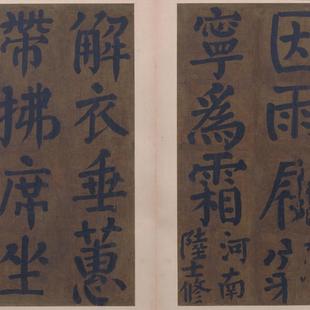 因雨履
寧爲霜
河南
陸士修
解衣垂蕙
帶拂席坐